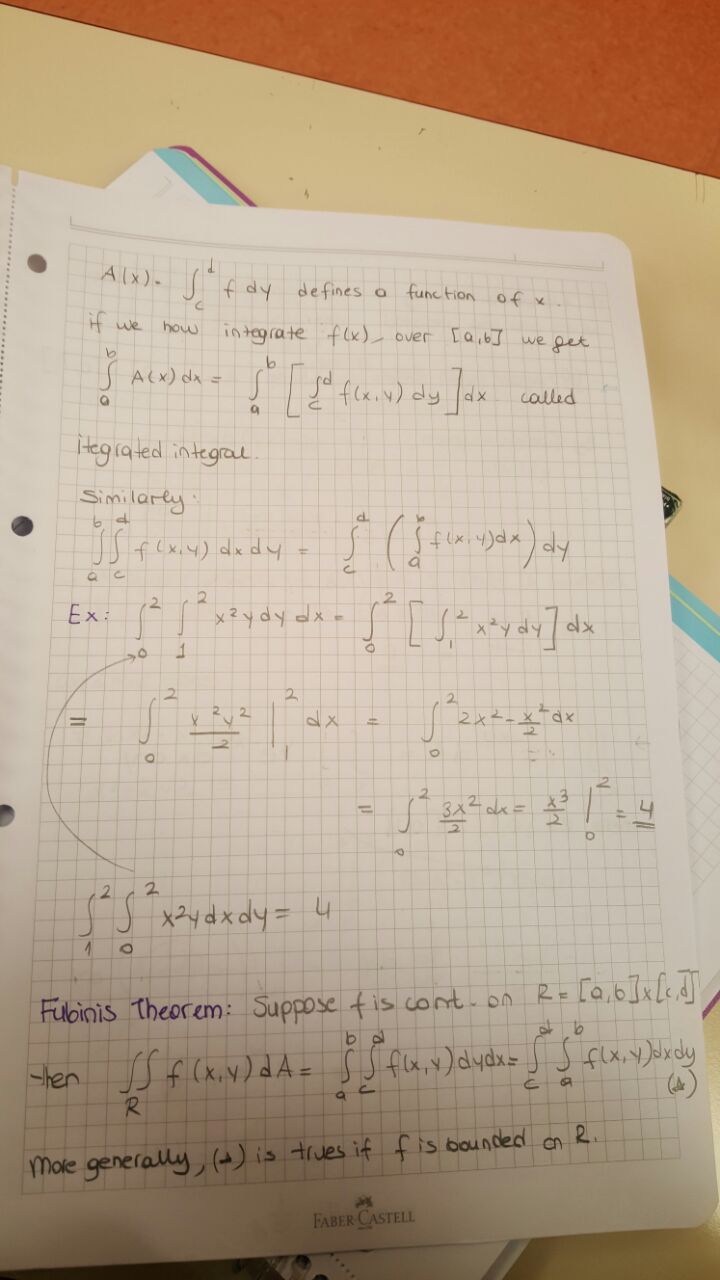 A(x). ∫_c^d f dy defines a function of x.
if we now integrate f(x), over [a,b] we get
∫_a^b A(x) dx = ∫_a^b [∫_c^d f(x,y) dy] dx called
itegrated integral.
Similarly:
∫_a^b ∫_c^d f(x,y) dx dy = ∫_c^d (∫_a^b f(x,y)dx) dy
Ex: ∫_0^2 ∫_1^2 x²y dy dx = ∫_0^2 [∫_1^2 x²y dy] dx
= ∫_0^2 x²y²/2 |_1^2 dx = ∫_0^2 2x² - x²/2 dx
= ∫_0^2 3x²/2 dx = x³/2 |_0^2 = 4
∫_1^2 ∫_0^2 x²y dx dy = 4
Fubinis Theorem: Suppose f is cont. on R = [a,b]x[c,d]
then ∬_R f(x,y) dA = ∫_a^b ∫_c^d f(x,y) dy dx = ∫_c^d ∫_a^b f(x,y) dx dy
More generally, is trues if f is bounded on R.
FABER-CASTELL